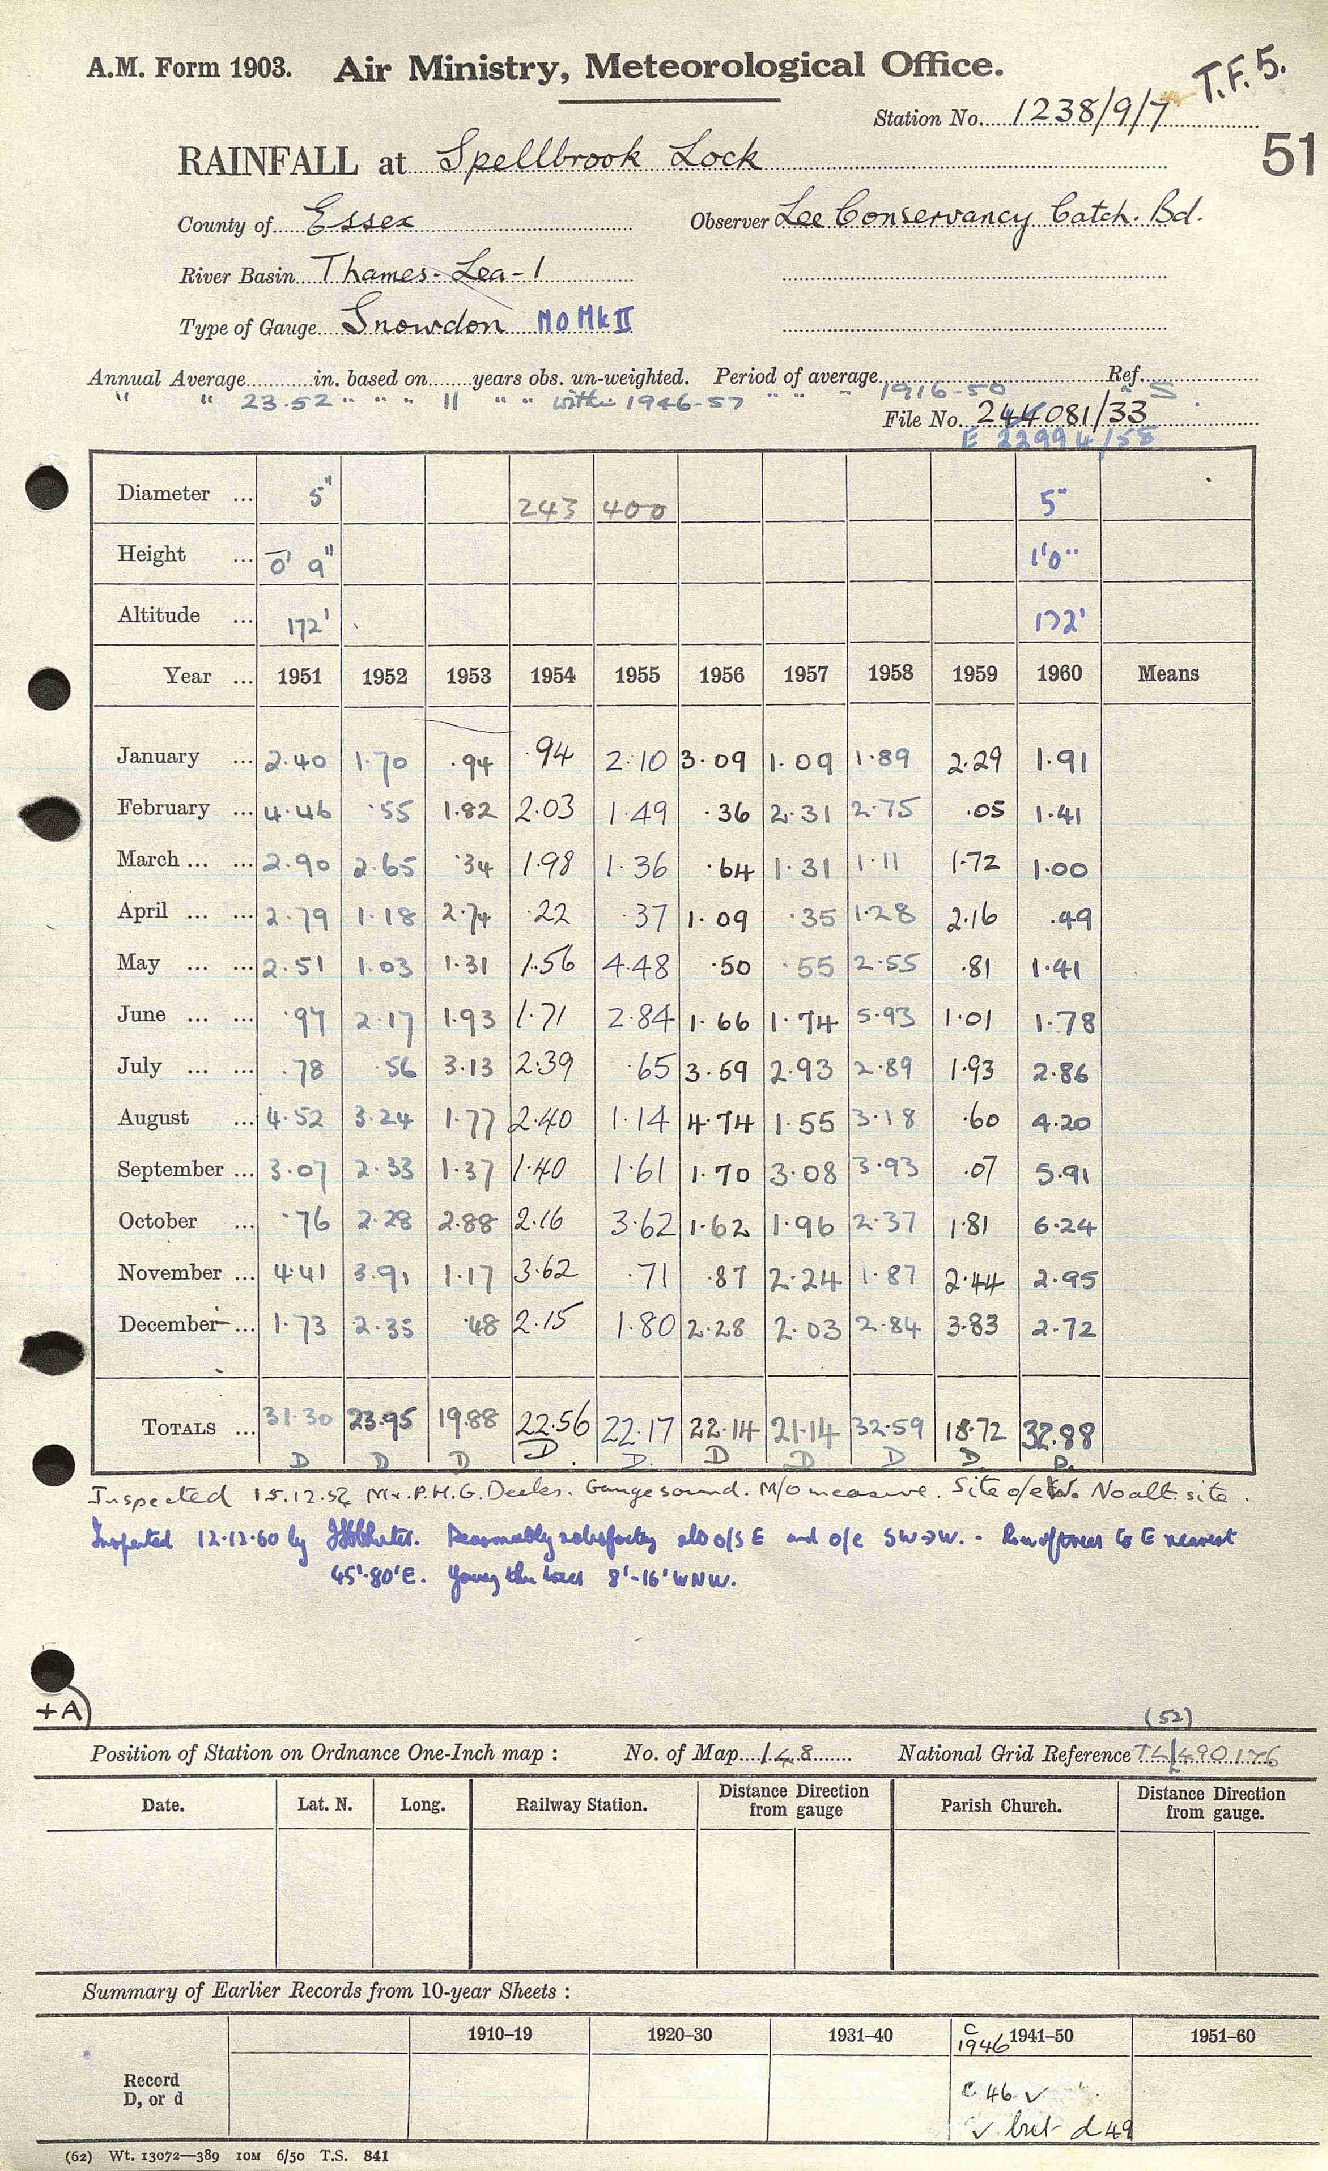 A.M. Form 1903. Air Ministry, Meteorological Office. T.F. 5.
Station No. 1238/9/7
RAINFALL at Spellbrook Lock 51
County of Essex Observer Lee Conservancy Catch. Bd.
River Basin Thames - Lea - 1
Type of Gauge Snowdon MO Mk II
Annual Average in. based on years obs. un-weighted. Period of average Ref.
" " 23.52 " " " 11 " " within 1946-57 " " " 1916-50 " S
File No. 244081/33
E 22994/58
Diameter ... 5" 243 400 5"
Height ... 0' 9" 1'0"
Altitude ... 172' 172'
Year ... 1951 1952 1953 1954 1955 1956 1957 1958 1959 1960 Means
January ... 2.40 1.70 .94 .94 2.10 3.09 1.09 1.89 2.29 1.91
February ... 4.46 .55 1.82 2.03 1.49 .36 2.31 2.75 .05 1.41
March ... ... 2.90 2.65 .34 1.98 1.36 .64 1.31 1.11 1.72 1.00
April ... ... 2.79 1.18 2.74 .22 .37 1.09 .35 1.28 2.16 .49
May ... ... 2.51 1.03 1.31 1.56 4.48 .50 .55 2.55 .81 1.41
June ... ... .97 2.17 1.93 1.71 2.84 1.66 1.74 5.93 1.01 1.78
July ... ... .78 .56 3.13 2.39 .65 3.59 2.93 2.89 1.93 2.86
August ... 4.52 3.24 1.77 2.40 1.14 4.74 1.55 3.18 .60 4.20
September ... 3.07 2.33 1.37 1.40 1.61 1.70 3.08 3.93 .07 5.91
October ... .76 2.28 2.88 2.16 3.62 1.62 1.96 2.37 1.81 6.24
November ... 4.41 3.91 1.17 3.62 .71 .87 2.24 1.87 2.44 2.95
December ... 1.73 2.35 .48 2.15 1.80 2.28 2.03 2.84 3.83 2.72
TOTALS ... 31.30 23.95 19.88 22.56 22.17 22.14 21.14 32.59 18.72 32.88
D D D D D D D D D D.
Inspected 15.12.52 Mr. P.H.G. Deeks. Gauge sound. M/O measure. Site o/e No alt. site.
Inspected 12.12.60 by Reasonably satisfactory also o/s E and o/e SW→W. - Row of trees to E nearest
45'-80'E. Young trees 8'-16' WNW.
+A)
(52)
Position of Station on Ordnance One-Inch map : No. of Map 148 National Grid Reference TL/490176
Date. Lat. N. Long. Railway Station. Distance Direction from gauge Parish Church. Distance Direction from gauge.
Summary of Earlier Records from 10-year Sheets :
1910–19 1920–30 1931–40 C 1946 1941–50 1951–60
Record
D, or d
C 46 ✓
✓ but d 49
(62) Wt. 13072—389 10M 6/50 T.S. 841